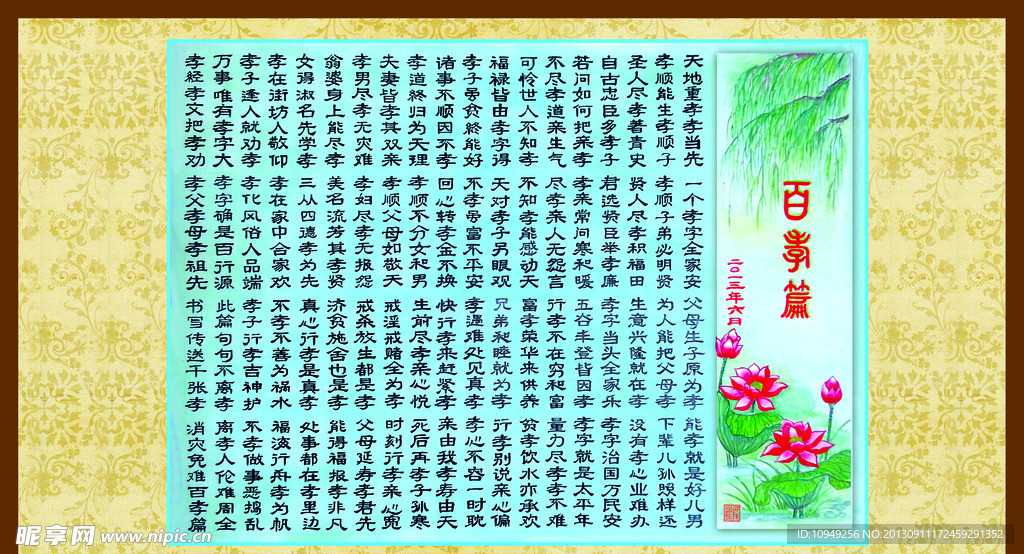 百孝篇
二〇一三年六月
天地重孝孝当先 一个孝字全家安 父母生子原为孝 能孝就是好儿男
孝顺能生孝顺子 孝顺子弟必明贤 为人能把父母孝 下辈儿孙照样还
圣人尽孝着青史 贤人尽孝积福田 生意兴隆就在孝 没有孝心业难办
自古忠臣多孝子 君选贤臣举孝廉 孝字当头全家乐 孝字治国万民安
若问如何把亲孝 孝亲常问寒和暖 五谷丰登皆因孝 孝字就是太平年
不尽孝道亲生气 尽孝亲人无怨言 行孝不在穷和富 量力尽孝孝不难
可怜世人不知孝 不知孝能感动天 富孝荣华来供养 贫孝饮水亦承欢
福禄皆由孝字得 天对孝子另眼观 兄弟和睦就为孝 行孝别说亲心偏
孝子虽贫終能好 不孝虽富不平安 孝遇难处见真孝 孝心不容一时耽
诸事不顺因不孝 回心转孝金不换 快行孝来赶紧孝 亲由我孝寿由天
孝道終归为天理 孝顺不分女和男 生前尽孝亲心悦 死后再孝子孙寒
夫妻皆孝其双亲 孝顺父母如敬天 戒淫戒赌全为孝 时刻行孝亲心宽
孝男尽孝无灾难 孝妇尽孝无报怨 戒杀放生都是孝 父母延寿孝者先
翁婆身上能尽孝 美名流芳其孝贤 济贫施舍也是孝 能得福报孝非凡
女得淑名先学孝 三从四德孝为先 真心行孝是真孝 处事都在孝里边
孝在街坊人敬仰 孝在家中合家欢 不孝不善为祸水 福海行舟孝为帆
孝子逢人就劝孝 孝化风俗人品端 孝子行孝吉神护 不孝做事恶捣乱
万事唯有孝字大 孝字确是百行源 此篇句句不离孝 离孝人伦难周全
孝經孝文把孝劝 孝父孝母孝祖先 书写传送千张孝 消灾免难百孝篇
昵享网 www.nipic.cn
ID:10949256 NO:20130911172459291352